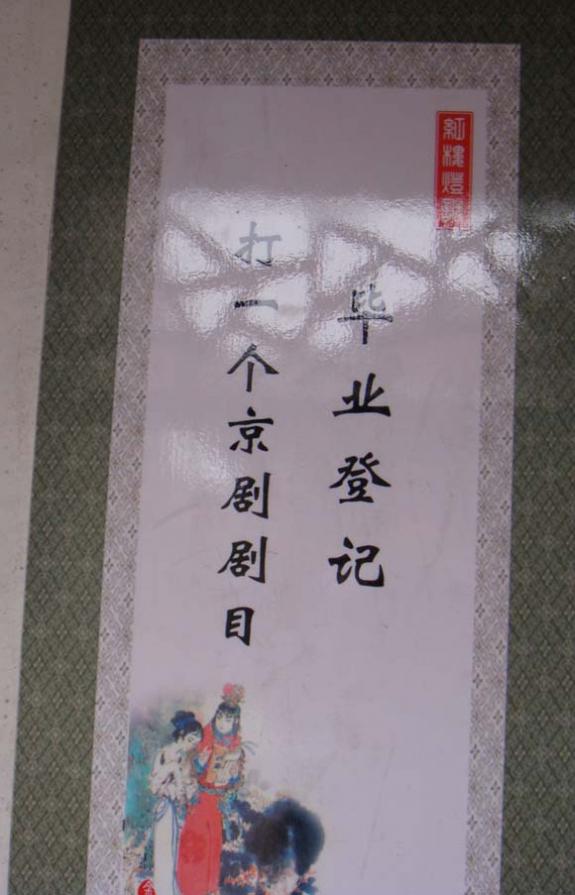 紅樓燈謎
毕业登记
打一个京剧剧目